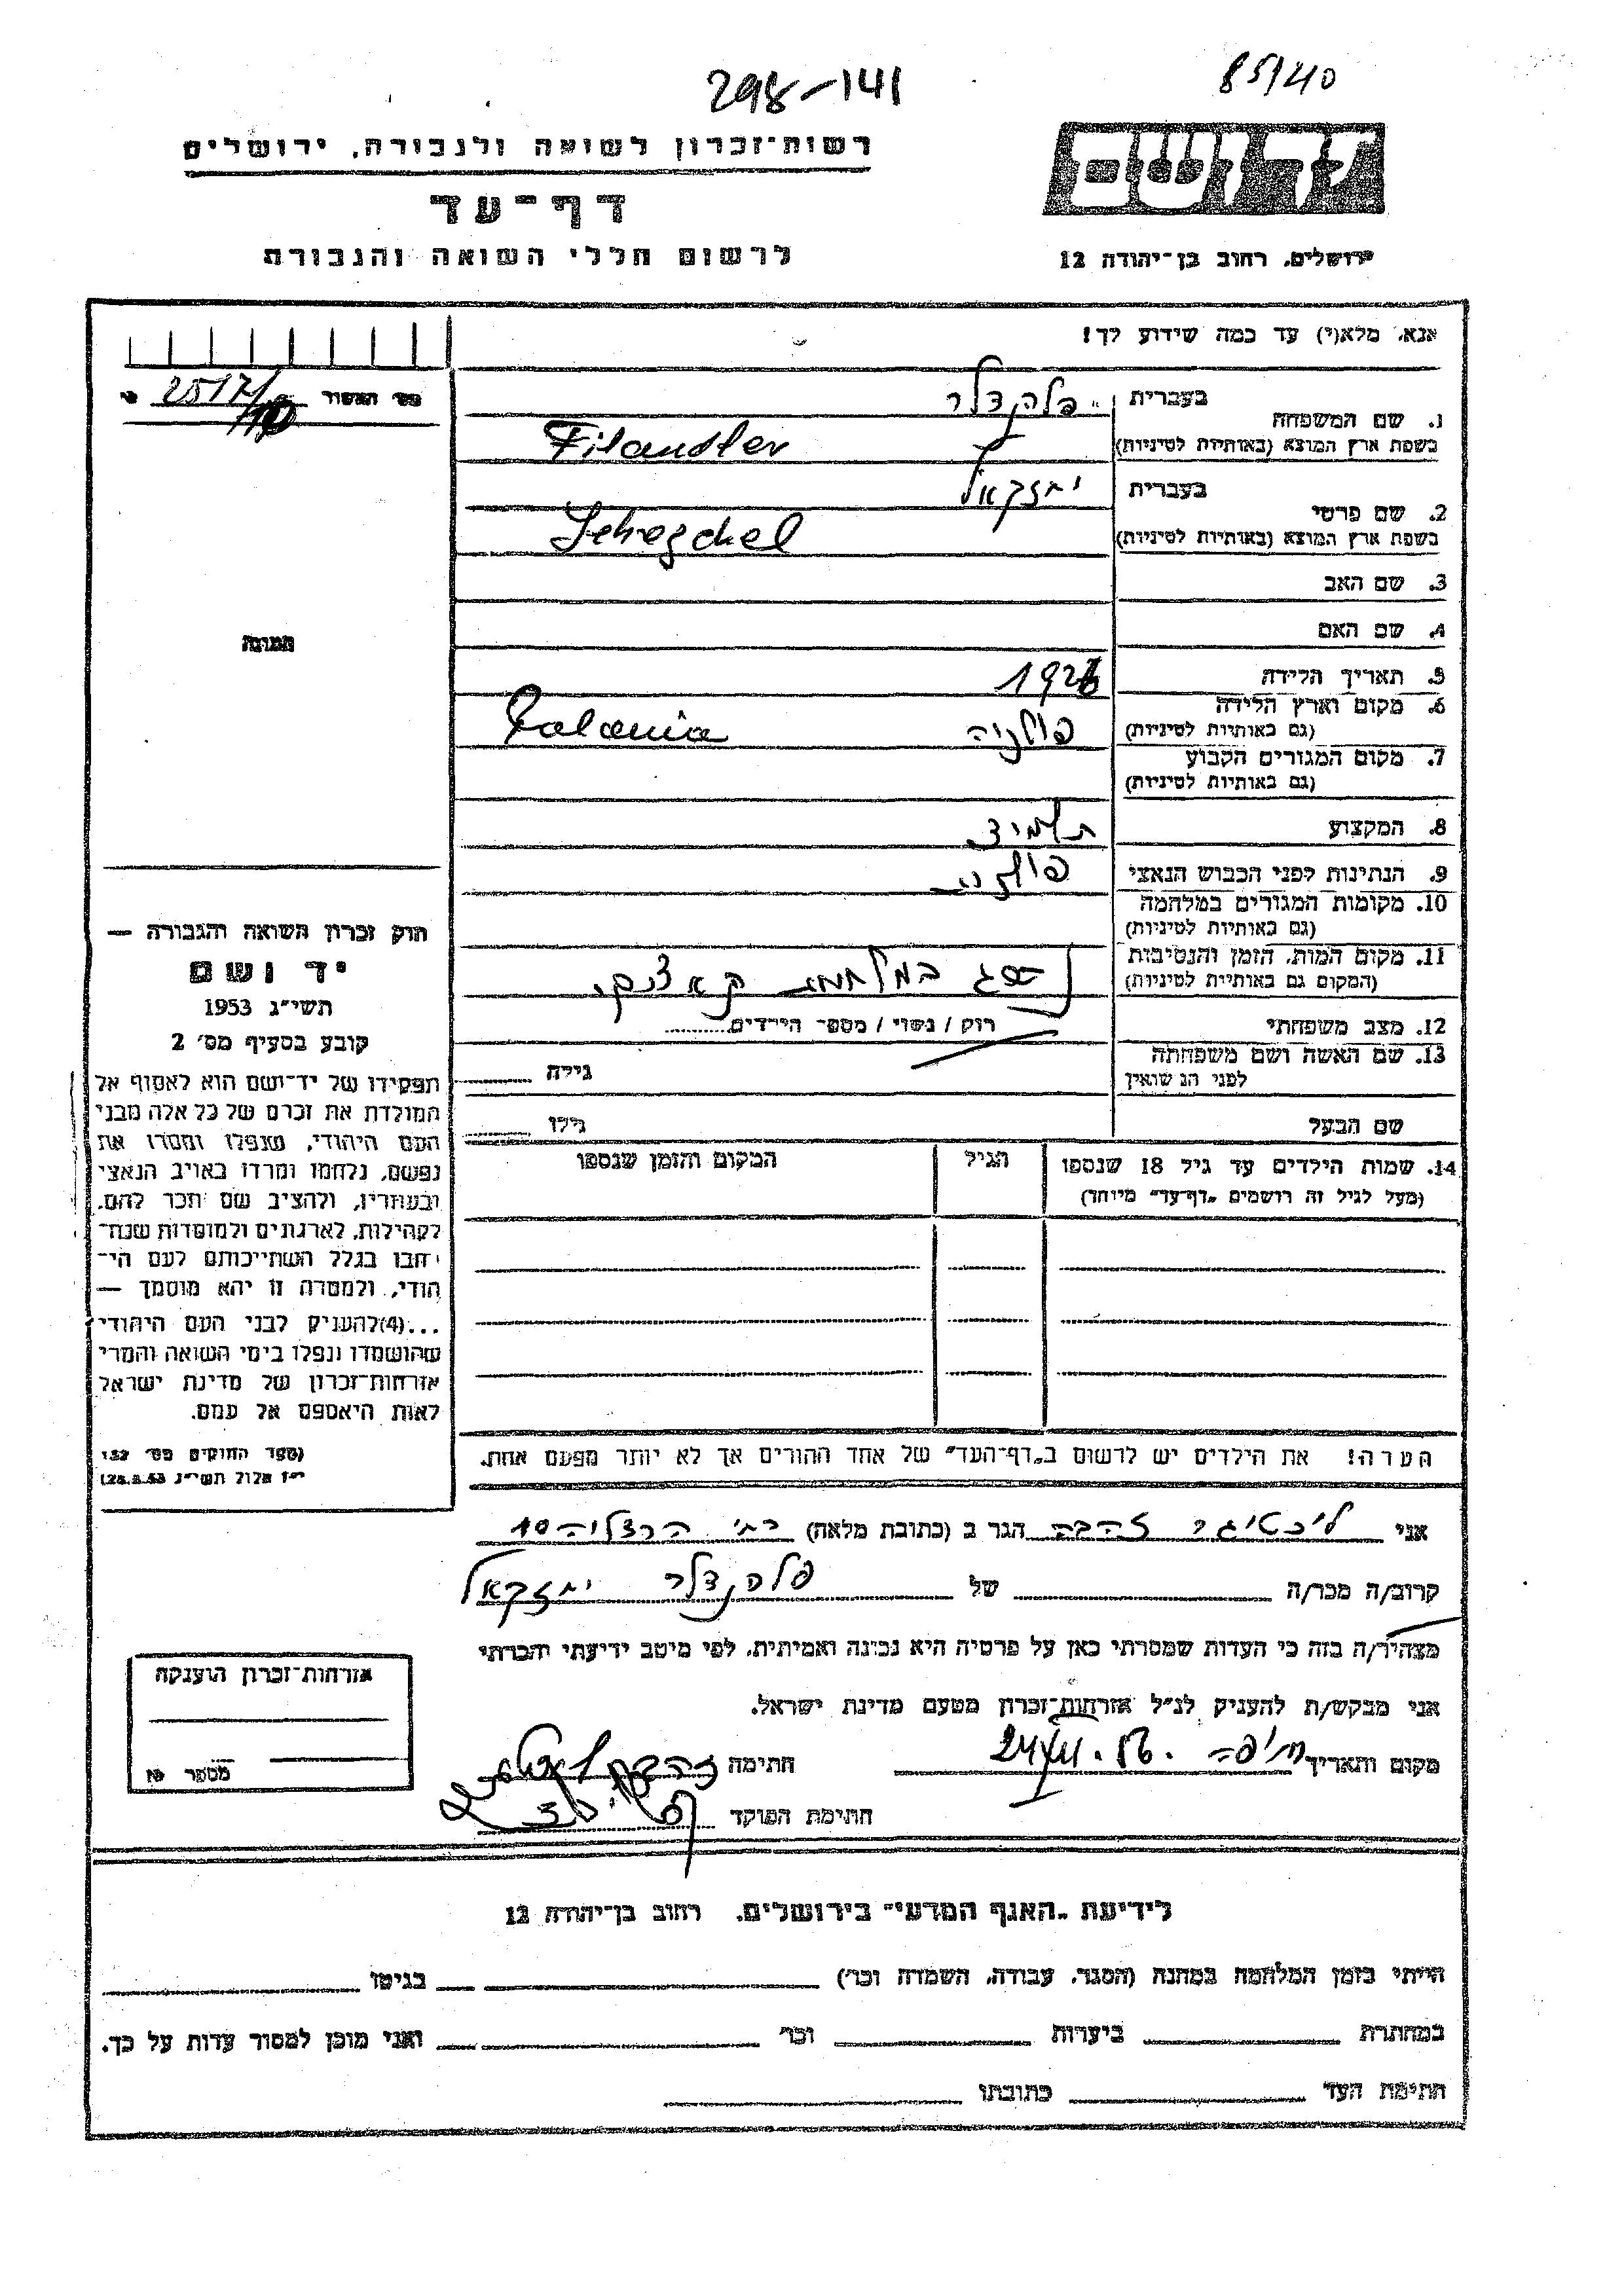 298-141
85/40
רשות־זכרון לשואה ולגבורה, ירושלים
דף־עד
לרשום חללי השואה והגבורה
ירושלים, רחוב בן־יהודה 12
אנא, מלא(י) עד כמה שידוע לך!
מס׳ האשור 2517/
1. שם המשפחה
בעברית
בשפת ארץ המוצא (באותיות לטיניות)
Filandler
2. שם פרטי
בעברית יחזקאל
בשפת ארץ המוצא (באותיות לטיניות)
3. שם האב
4. שם האם
5. תאריך הלידה
6. מקום וארץ הלידה פולניה
(גם באותיות לטיניות)
7. מקום המגורים הקבוע
(גם באותיות לטיניות)
8. המקצוע תלמיד
9. הנתינות לפני הכבוש הנאצי
10. מקומות המגורים במלחמה
(גם באותיות לטיניות)
11. מקום המות, הזמן והנסיבות
(המקום גם באותיות לטיניות)
12. מצב משפחתי רוק / נשוי / מספר הילדים
13. שם האשה ושם משפחתה
לפני הנשואין גילה
שם הבעל גילו
14. שמות הילדים עד גיל 18 שנספו
(מעל לגיל זה רושמים „דף־עד" מיוחד)
הגיל
המקום והזמן שנספו
הערה! את הילדים יש לרשום ב„דף־העד" של אחד ההורים אך לא יותר מפעם אחת.
תמונה
חוק זכרון השואה והגבורה —
יד ושם
תשי״ג 1953
קובע בסעיף מס׳ 2
תפקידו של יד־ושם הוא לאסוף אל
המולדת את זכרם של כל אלה מבני
העם היהודי, שנפלו ומסרו את
נפשם, נלחמו ומרדו באויב הנאצי
ובעוזריו, ולהציב שם וזכר להם,
לקהילות, לארגונים ולמוסדות שנח־
רבו בגלל השתייכותם לעם הי־
הודי, ולמטרה זו יהא מוסמך —
...(4) להעניק לבני העם היהודי
שהושמדו ונפלו בימי השואה והמרי
אזרחות־זכרון של מדינת ישראל
לאות היאספם אל עמם.
(ספר החוקים מס׳ 132
י״ז אלול תשי״ג 28.8.53)
אני זהבה הגר ב (כתובת מלאה) הרצליה 10
קרוב/ה מכר/ה של יחזקאל
מצהיר/ה בזה כי העדות שמסרתי כאן על פרטיה היא נכונה ואמיתית, לפי מיטב ידיעתי והכרתי
אני מבקש/ת להעניק לנ״ל אזרחות־זכרון מטעם מדינת ישראל.
מקום ותאריך חיפה
חתימה
חתימת הפוקד
אזרחות־זכרון הוענקה
מספר
לידיעת „האגף המדעי" בירושלים, רחוב בן־יהודה 12
הייתי בזמן המלחמה במחנה (הסגר, עבודה, השמדה וכו׳) בגיטו
במחתרת ביערות וכו׳ ואני מוכן למסור עדות על כך.
חתימת העד כתובתו